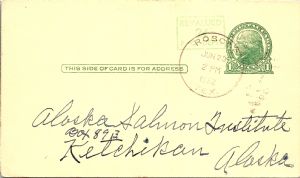 REVALUED
ROSCO
JUN 23
2 PM
THIS SIDE OF CARD IS FOR ADDRESS
Alaska Salmon Institute
Box 893
Ketchikan
Alaska